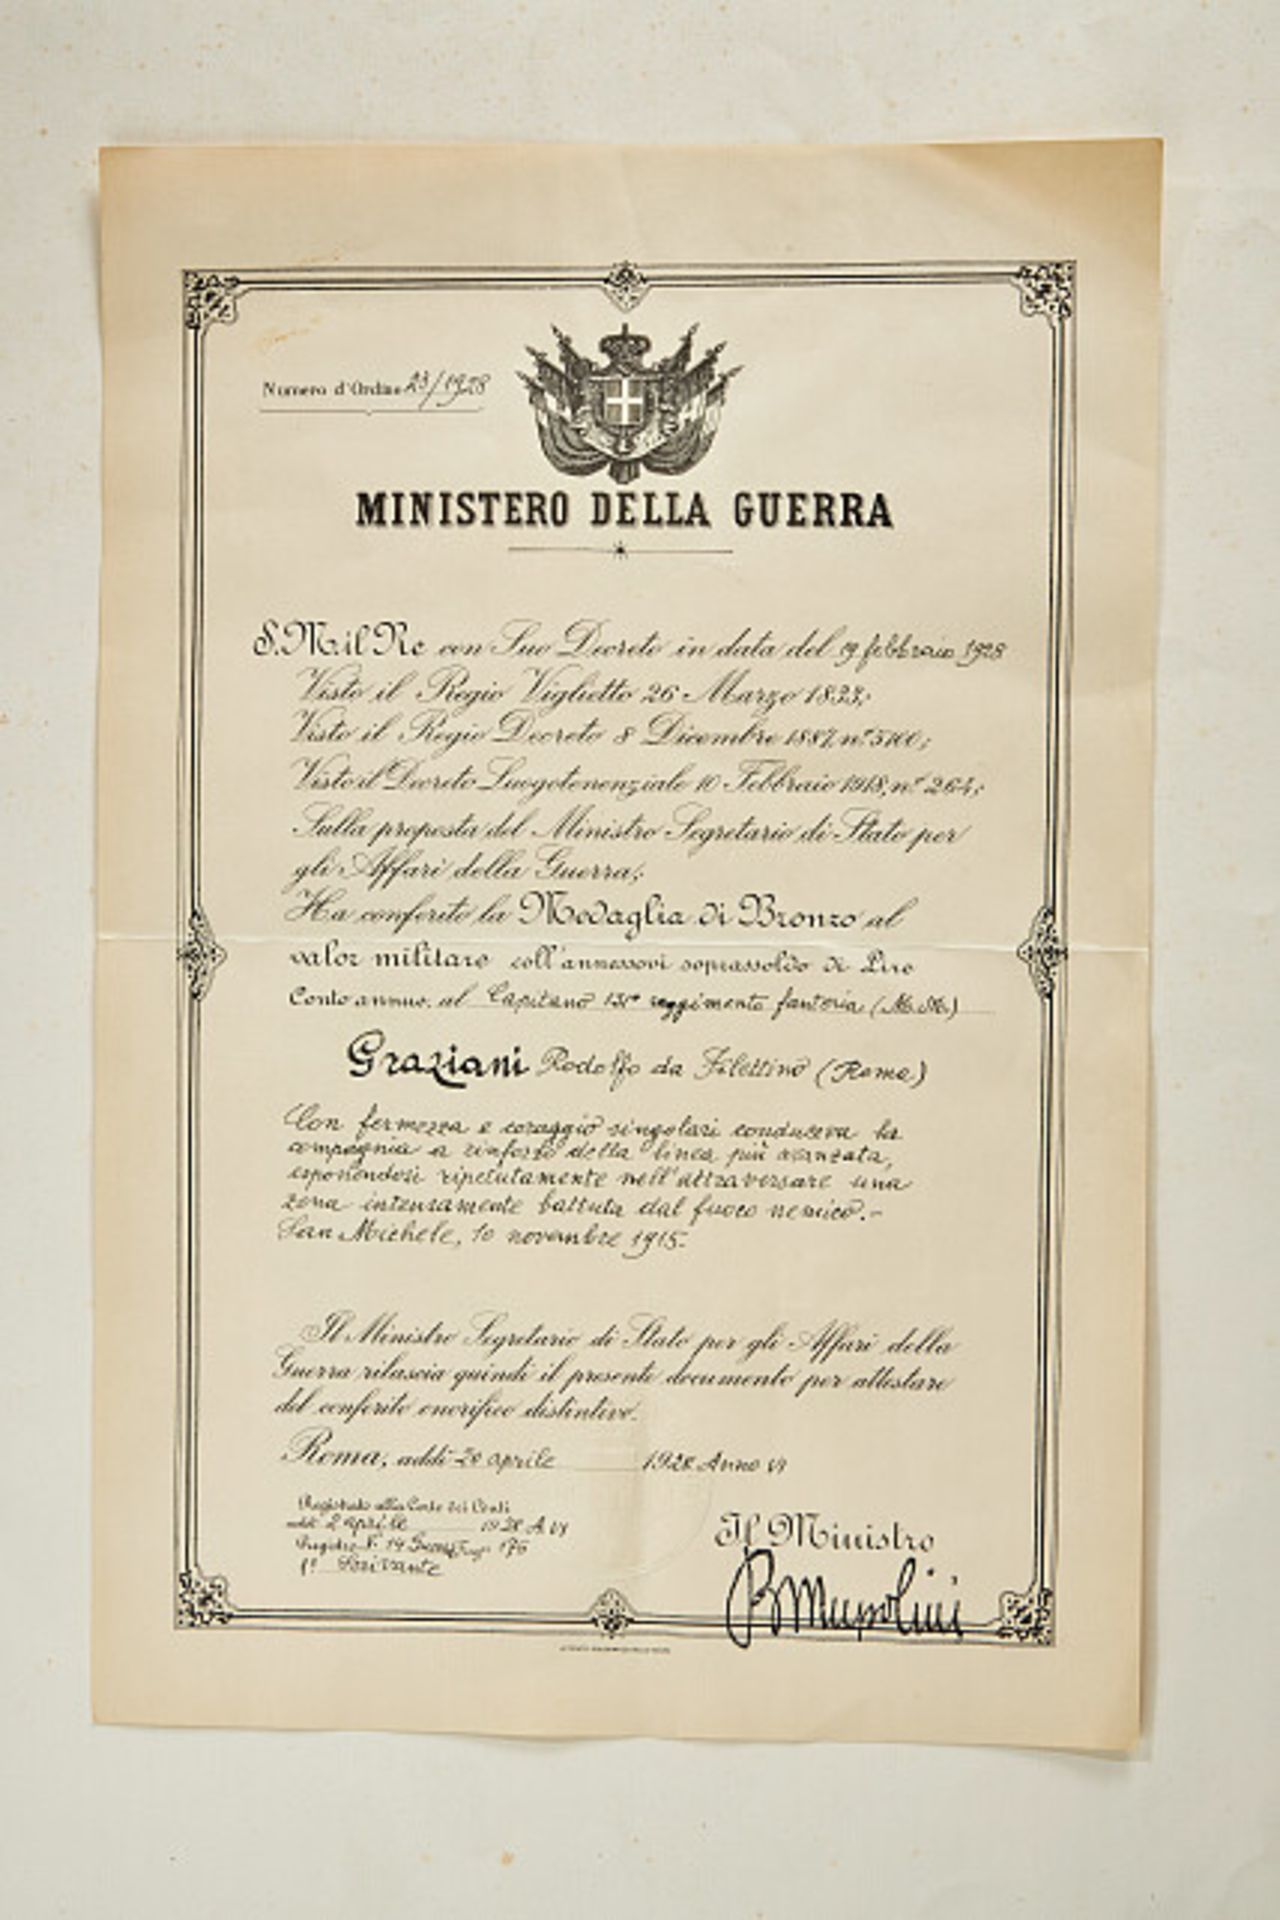 Numero d'Ordine 23/1928
MINISTERO DELLA GUERRA
S. M. il Re con Suo Decreto in data del 19 febbraio 1928
Visto il Regio Viglietto 26 Marzo 1833;
Visto il Regio Decreto 8 Dicembre 1887, n.º 5100;
Visto il Decreto Luogotenenziale 10 Febbraio 1918, n.º 264;
Sulla proposta del Ministro Segretario di Stato per
gli Affari della Guerra;
Ha conferito la Medaglia di Bronzo al
valor militare coll'annessovi soprassoldo di Lire
Cento annue, al Capitano 131º reggimento fanteria (M. M.)
Graziani Rodolfo da Filettino (Roma)
Con fermezza e coraggio singolari conduceva la
compagnia a rinforzo della linea più avanzata,
esponendosi ripetutamente nell'attraversare una
zona intensamente battuta dal fuoco nemico.-
San Michele, 10 novembre 1915.
Il Ministro Segretario di Stato per gli Affari della
Guerra rilascia quindi il presente documento per attestare
del conferito onorifico distintivo.
Roma, addì 20 aprile 1928 Anno VI
Registrato alla Corte dei Conti
addì 2 aprile 1928 A. VI
Registro N. 14 Guerra 176
Il Ministro
B Mussolini